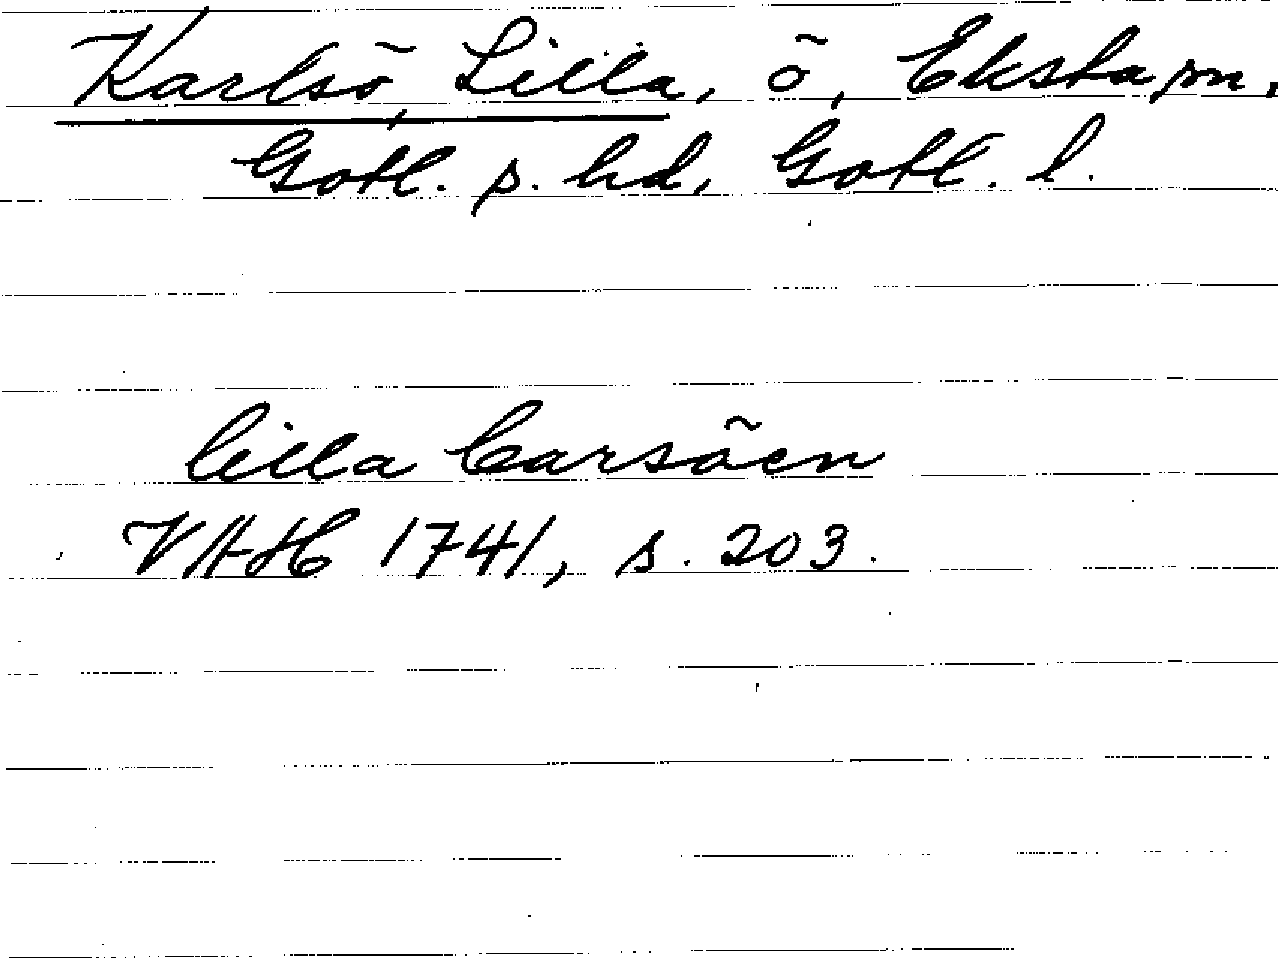 Karlsö, Lilla, ö, Eksta sn,
Gotl. s. hd, Gotl. l.
lilla Carsöen
VAH 1741, s. 203.